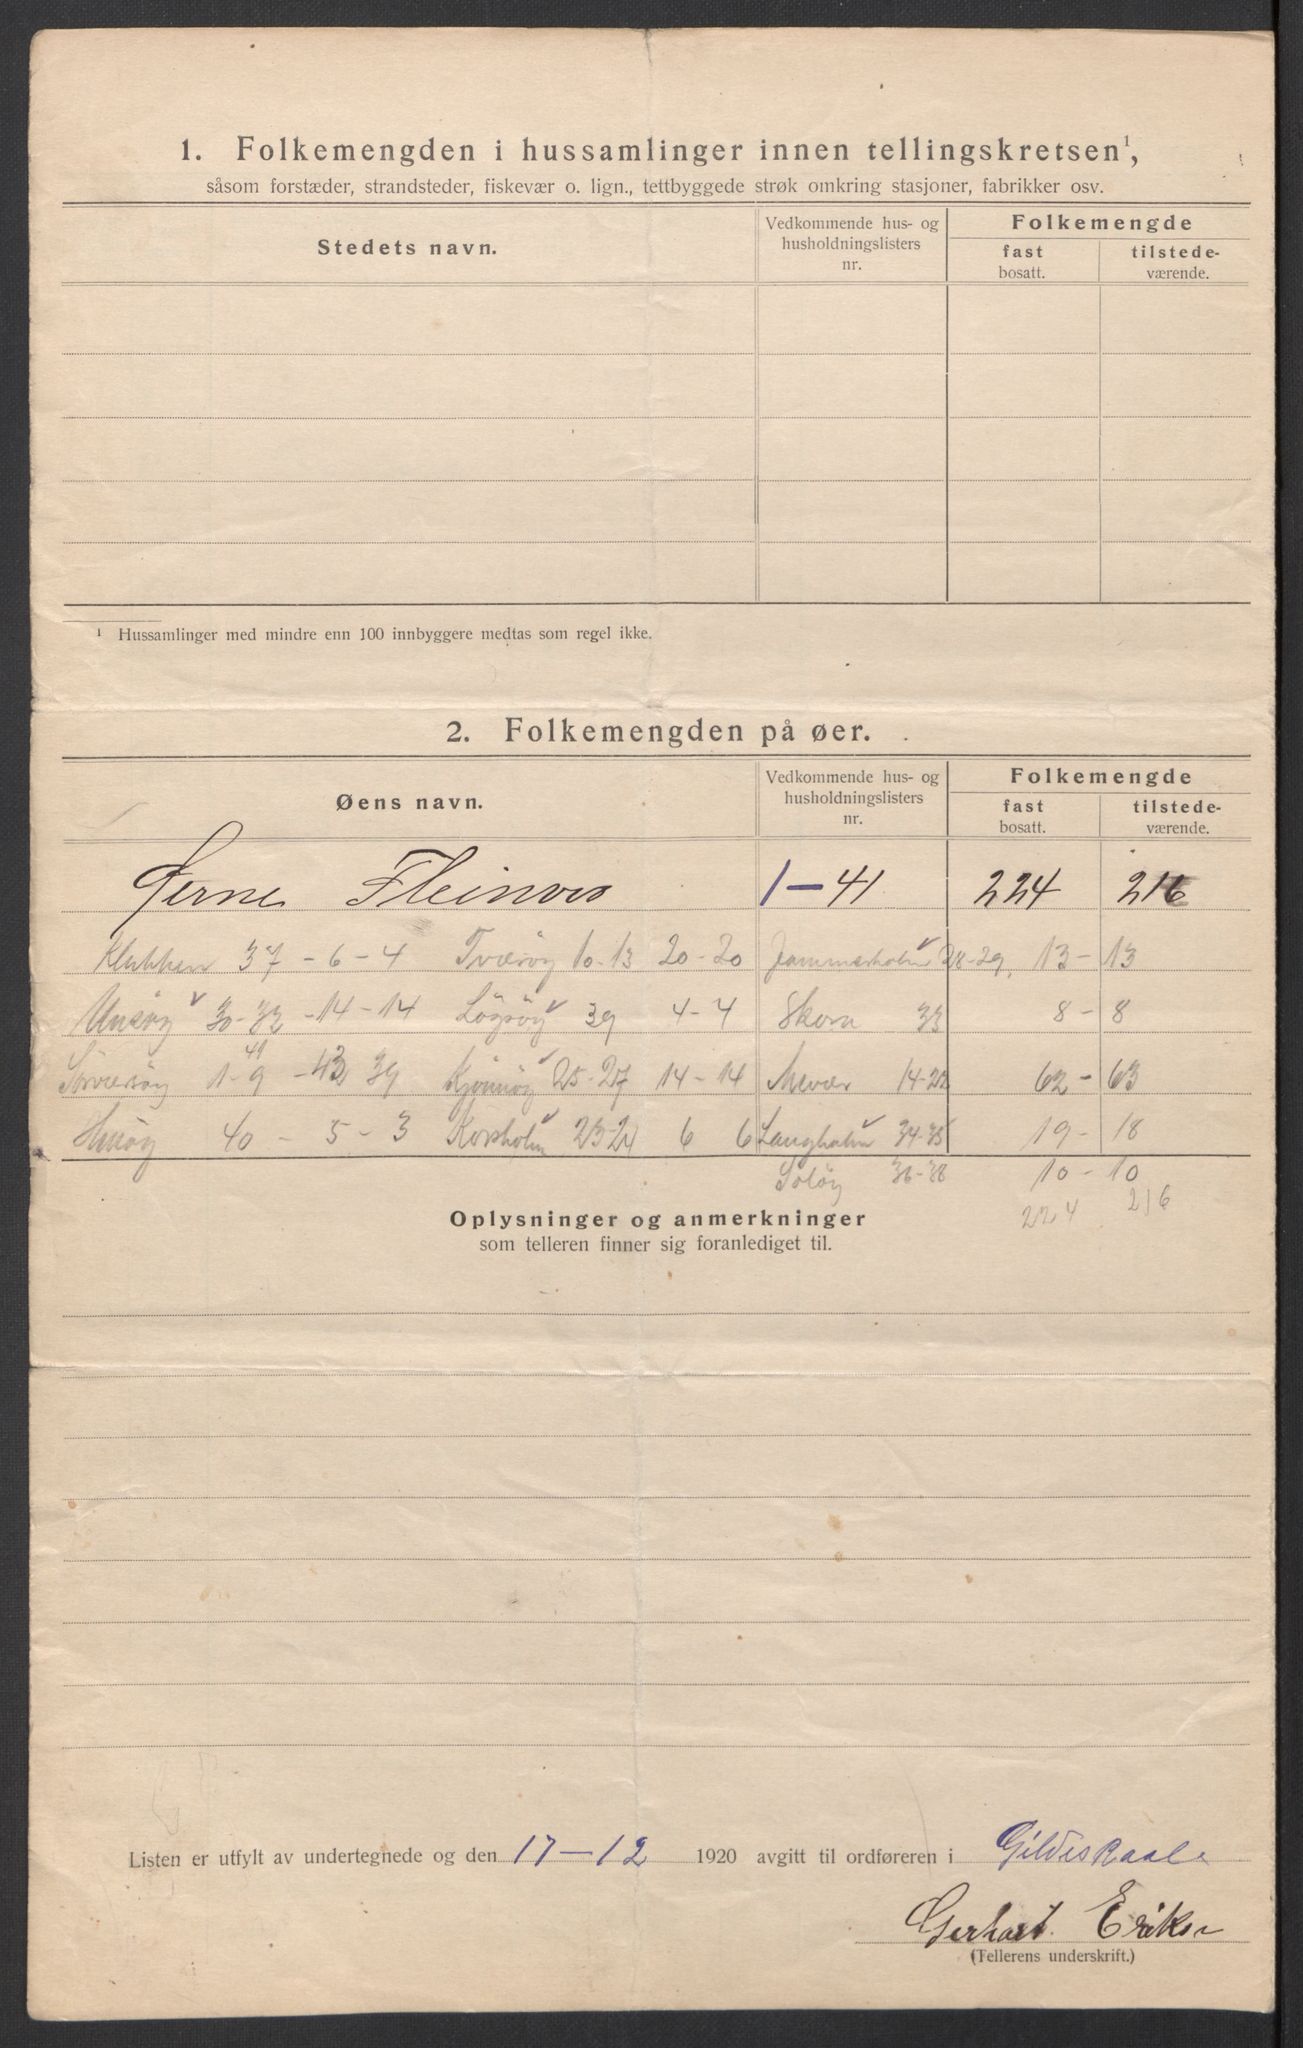 1. Folkemengden i hussamlinger innen tellingskretsen¹,
såsom forstæder, strandsteder, fiskevær o. lign., tettbyggede strøk omkring stasjoner, fabrikker osv.
Stedets navn.
Vedkommende hus- og husholdningslisters nr.
Folkemengde
fast bosatt.
tilstede-værende.
¹ Hussamlinger med mindre enn 100 innbyggere medtas som regel ikke.
2. Folkemengden på øer.
Øens navn.
Vedkommende hus- og husholdningslisters nr.
Folkemengde
fast bosatt.
tilstede-værende.
Øerne Fleinvær 1-41 224 216
Klubben 37 - 6 - 4 Tværøy 10-13 20-20 Jammerholm 28-29 13 - 13
30-32 - 14 - 14 39 4-4 Skorn 33 8 - 8
Sørværøy 1-9 41 - 43 39 25-27 14-14 14-22 62 - 63
Husøy 40 - 5 - 3 Korsholm 23-24 6 6 Langholm 34-35 19 - 18
Soløy 36-38 10 - 10
224 216
Oplysninger og anmerkninger
som telleren finner sig foranlediget til.
Listen er utfylt av undertegnede og den 17-12 1920 avgitt til ordføreren i Gildeskaal.
Gerhart Eriksen
(Tellerens underskrift.)